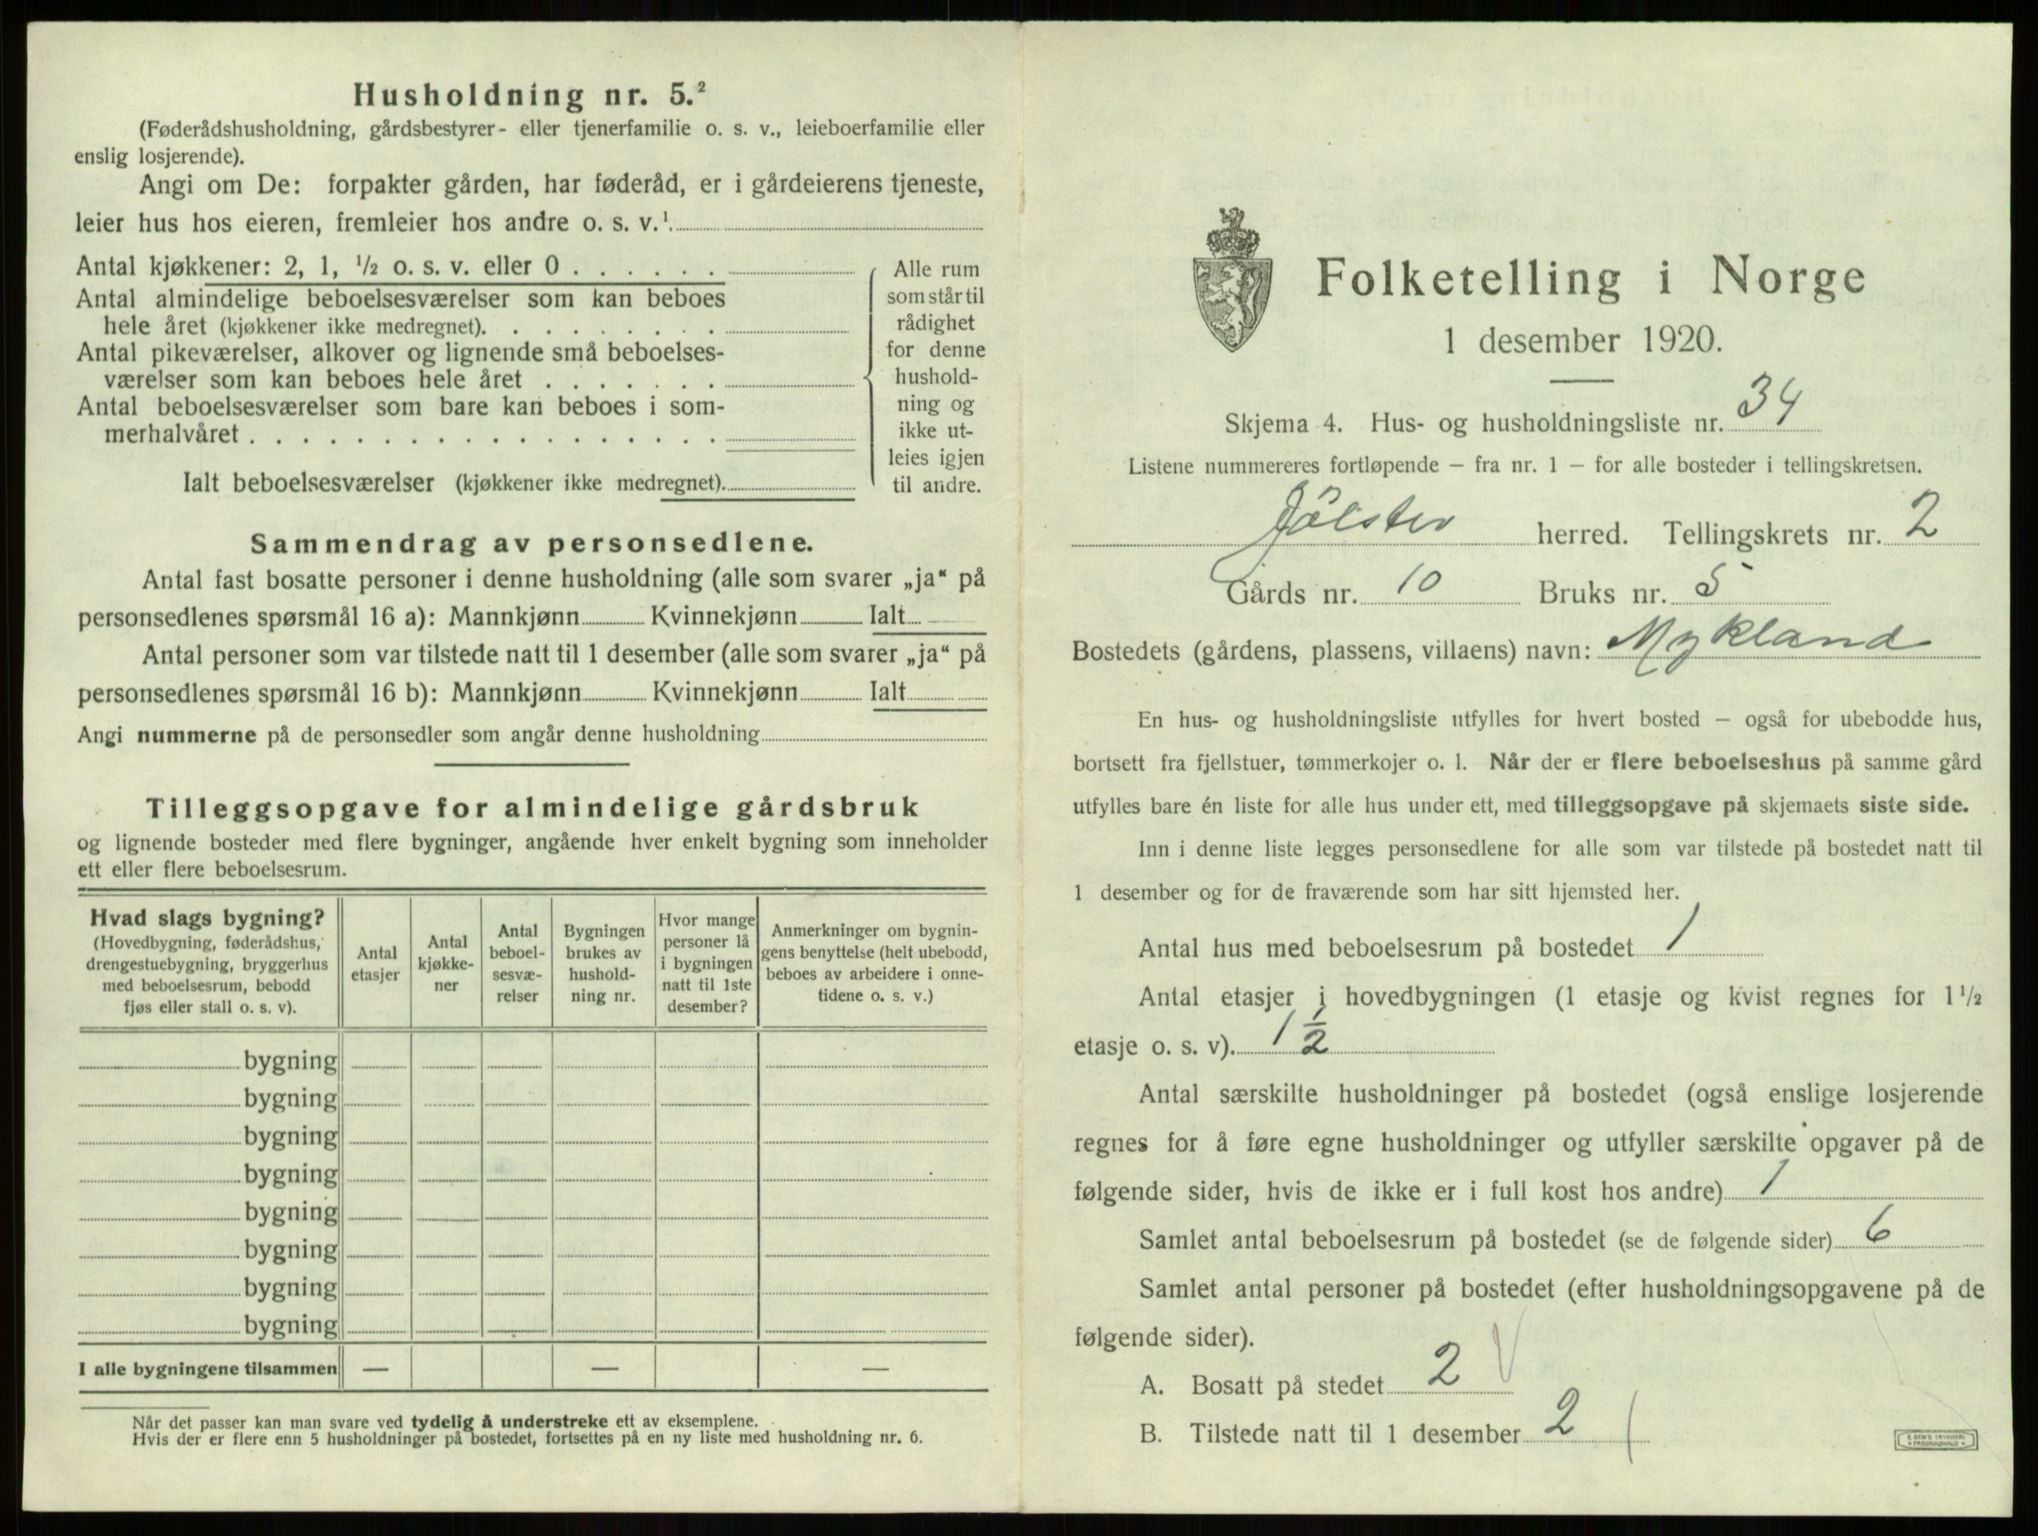 Husholdning nr. 5.²
(Føderådshusholdning, gårdsbestyrer- eller tjenerfamilie o. s. v., leieboerfamilie eller
enslig losjerende).
Angi om De: forpakter gården, har føderåd, er i gårdeierens tjeneste,
leier hus hos eieren, fremleier hos andre o. s. v.¹
Antal kjøkkener: 2, 1, ½ o. s. v. eller 0 . . . . . .
Antal almindelige beboelsesværelser som kan beboes
hele året (kjøkkener ikke medregnet). . . . . . . . .
Antal pikeværelser, alkover og lignende små beboelses-
værelser som kan beboes hele året . . . . . . .
Antal beboelsesværelser som bare kan beboes i som-
merhalvåret . . . . . . . . . . . . . . . . . .
Ialt beboelsesværelser (kjøkkener ikke medregnet)
Alle rum
som står til
rådighet
for denne
hushold-
ning og
ikke ut-
leies igjen
til andre.
Sammendrag av personsedlene.
Antal fast bosatte personer i denne husholdning (alle som svarer „ja“ på
personsedlenes spørsmål 16 a): Mannkjønn Kvinnekjønn Ialt
Antal personer som var tilstede natt til 1 desember (alle som svarer „ja“ på
personsedlenes spørsmål 16 b): Mannkjønn Kvinnekjønn Ialt
Angi nummerne på de personsedler som angår denne husholdning
Tilleggsopgave for almindelige gårdsbruk
og lignende bosteder med flere bygninger, angående hver enkelt bygning som inneholder
ett eller flere beboelsesrum.
Hvad slags bygning?
(Hovedbygning, føderådshus,
drengestuebygning, bryggerhus
med beboelsesrum, bebodd
fjøs eller stall o. s. v).
Antal
etasjer
Antal
kjøkke-
ner
Antal
beboel-
sesvæ-
relser
Bygningen
brukes av
hushold-
ning nr.
Hvor mange
personer lå
i bygningen
natt til 1ste
desember?
Anmerkninger om bygnin-
gens benyttelse (helt ubebodd,
beboes av arbeidere i onne-
tidene o. s. v.)
bygning
bygning
bygning
bygning
bygning
bygning
bygning
bygning
I alle bygningene tilsammen — — —
Når det passer kan man svare ved tydelig å understreke ett av eksemplene.
Hvis der er flere enn 5 husholdninger på bostedet, fortsettes på en ny liste med husholdning nr. 6.
Folketelling i Norge
1 desember 1920.
Skjema 4. Hus- og husholdningsliste nr. 34
Listene nummereres fortløpende – fra nr. 1 – for alle bosteder i tellingskretsen.
Jölster herred. Tellingskrets nr. 2
Gårds nr. 10 Bruks nr. 5
Bostedets (gårdens, plassens, villaens) navn: Mykland
En hus- og husholdningsliste utfylles for hvert bosted – også for ubebodde hus,
bortsett fra fjellstuer, tømmerkojer o. l. Når der er flere beboelseshus på samme gård
utfylles bare én liste for alle hus under ett, med tilleggsopgave på skjemaets siste side.
Inn i denne liste legges personsedlene for alle som var tilstede på bostedet natt til
1 desember og for de fraværende som har sitt hjemsted her.
Antal hus med beboelsesrum på bostedet 1
Antal etasjer i hovedbygningen (1 etasje og kvist regnes for 1½
etasje o. s. v). 1½
Antal særskilte husholdninger på bostedet (også enslige losjerende
regnes for å føre egne husholdninger og utfyller særskilte opgaver på de
følgende sider, hvis de ikke er i full kost hos andre) 1
Samlet antal beboelsesrum på bostedet (se de følgende sider) 6
Samlet antal personer på bostedet (efter husholdningsopgavene på de
følgende sider).
A. Bosatt på stedet 2
B. Tilstede natt til 1 desember 2